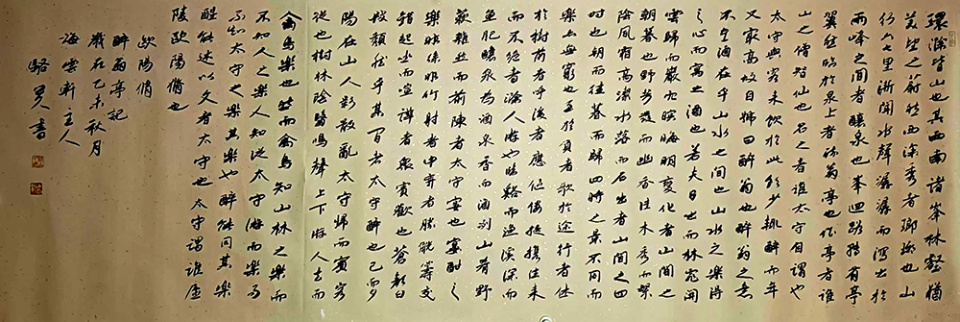 環滁皆山也其西南諸峯林壑猶
美望之蔚然而深秀者瑯琊也山
行六七里漸聞水聲潺潺而瀉出於
兩峰之間者釀泉也峯迴路轉有亭
翼然臨於泉上者醉翁亭也作亭者誰
山之僧智仙也名之者誰太守自謂也
太守與客来飲於此飲少輒醉而年
又最高故自號曰醉翁也醉翁之意
不在酒在乎山水之間也山水之樂得
之心而寓之酒也若夫日出而林霏開
雲歸而巖穴暝晦明變化者山間之
朝暮也野芳發而幽香佳木秀而繁
陰風霜高潔水落而石出者山間之四
時也朝而往暮而歸四時之景不同而
樂亦無窮也至於負者歌於途行者休
於樹前者呼後者應傴僂提攜往来
而不絕者滁人游也臨谿而漁溪深而
魚肥釀泉為酒泉香而酒洌山肴野
蔌雜然而前陳者太守宴也宴酣之
樂非絲非竹射者中弈者勝觥籌交
錯起坐而諠譁者衆賓歡也蒼顏白
髮頹然乎其間者太守醉也已而夕
陽在山人影散亂太守歸而賓客
從也樹林陰翳鳴聲上下游人去而
禽鳥樂也然而禽鳥知山林之樂而
不知人之樂人知從太守游而樂而
不知太守之樂其樂也醉能同其樂
醒能述以文者太守也太守謂誰廬
陵歐陽脩也
歐陽脩
醉翁亭記
歲在乙未秋月
海雲軒主人
駱書